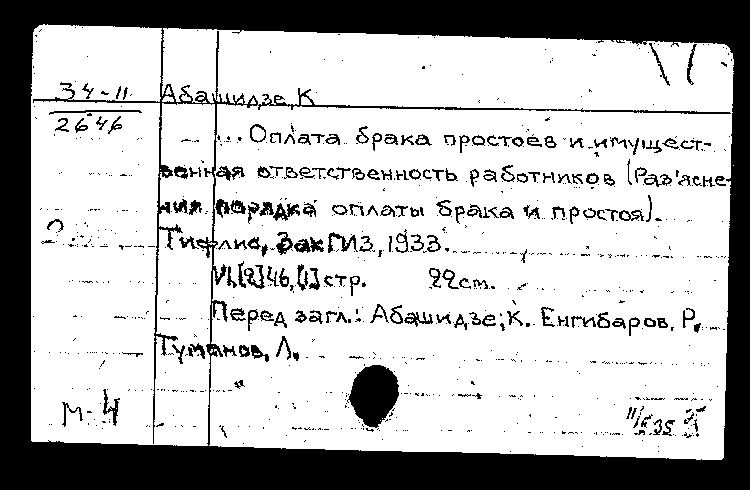 34-11 Абашидзе, К
2646
... Оплата брака простоев и имущест-
венная ответственность работников (Раз'ясне-
ния порядка оплаты брака и простоя).
Тифлис, ЗакГИЗ, 1933.
VI,[2]46,[1]стр. 22см.
Перед загл.: Абашидзе, К. Енгибаров, Р.
Туманов, Л.
М-4